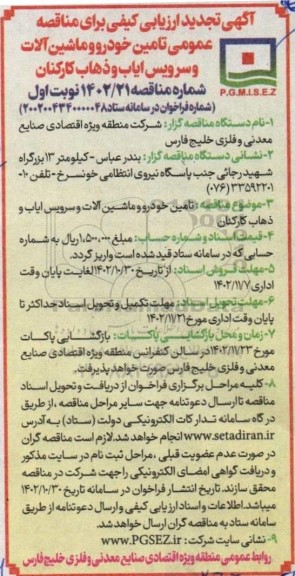 آگهی تجدید ارزیابی کیفی برای مناقصه
عمومی تامین خودرو و ماشین آلات
و سرویس ایاب و ذهاب کارکنان
P.G.M.I.S.E.Z
شماره مناقصه ۱۴۰۲/۲۱ نوبت اول
(شماره فراخوان در سامانه ستاد ۲۰۰۲۰۰۴۳۴۰۰۰۰۰۴۸)
۱-نام دستگاه مناقصه گزار: شرکت منطقه ویژه اقتصادی صنایع
معدنی و فلزی خلیج فارس
۲-نشانی دستگاه مناقصه گزار: بندرعباس - کیلومتر ۱۳ بزرگراه
شهید رجائی جنب پاسگاه نیروی انتظامی خونسرخ - تلفن ۱۰-
۳۳۵۹۲۲۰۱ (۰۷۶)
۳-موضوع مناقصه: تامین خودرو و ماشین آلات و سرویس ایاب و
ذهاب کارکنان
۴-قیمت اسناد و شماره حساب: مبلغ ۱,۵۰۰,۰۰۰ ریال به شماره
حسابی که در سامانه ستاد قید شده است واریز گردد.
۵-مهلت فروش اسناد: از تاریخ ۱۴۰۲/۱۰/۳۰ لغایت پایان وقت
اداری ۱۴۰۲/۱۱/۷
۶-مهلت تحویل اسناد: مهلت تکمیل و تحویل اسناد حداکثر تا
پایان وقت اداری مورخ ۱۴۰۲/۱۱/۲۱
۷-زمان و محل بازگشایی پاکات: بازگشایی پاکات
مورخ ۱۴۰۲/۱۱/۲۳ در سالن کنفرانس منطقه ویژه اقتصادی صنایع
معدنی و فلزی خلیج فارس صورت خواهد پذیرفت.
۸-کلیه مراحل برگزاری فراخوان از دریافت و تحویل اسناد
مناقصه تا ارسال دعوتنامه جهت سایر مراحل مناقصه، از طریق
درگاه سامانه تدارکات الکترونیکی دولت (ستاد) به آدرس
www.setadiran.ir انجام خواهد شد. لازم است مناقصه گران
در صورت عدم عضویت قبلی، مراحل ثبت نام در سایت مذکور
و دریافت گواهی امضای الکترونیکی را جهت شرکت در مناقصه
محقق سازند. تاریخ انتشار فراخوان در سامانه تاریخ ۱۴۰۲/۱۰/۳۰
میباشد. اطلاعات و اسناد ارزیابی کیفی و ارسال دعوتنامه از طریق
سامانه ستاد به مناقصه گران ارسال خواهد شد.
۹- نشانی سایت شرکت: www.PGSEZ.ir
روابط عمومی منطقه ویژه اقتصادی صنایع معدنی و فلزی خلیج فارس